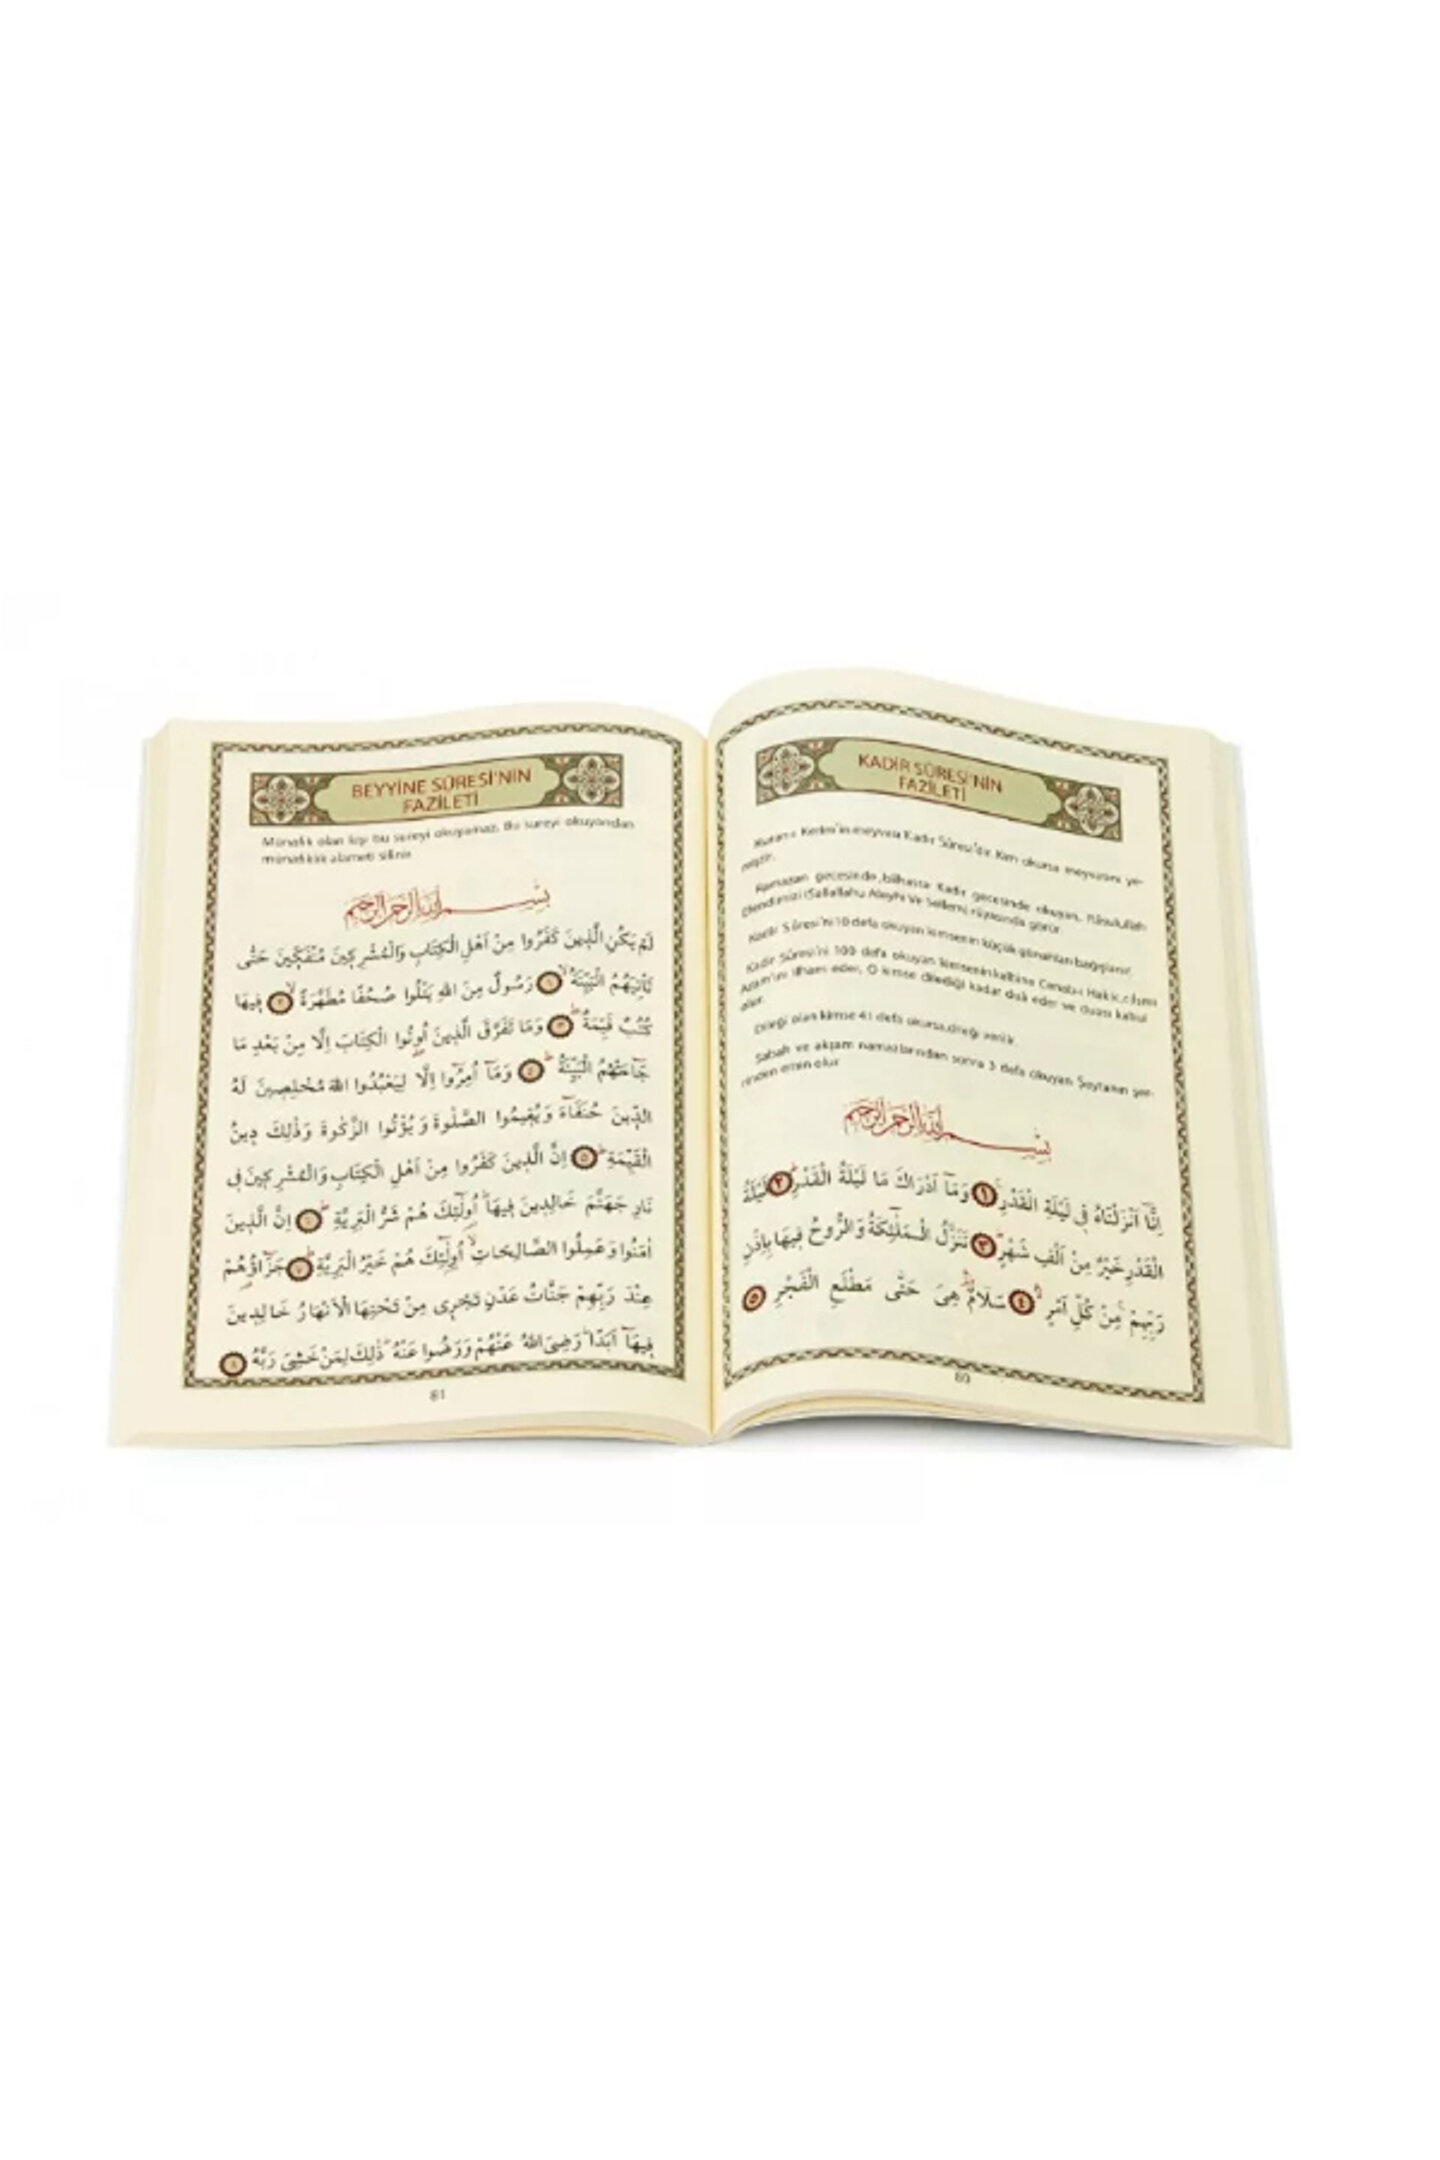 KADİR SÛRESİ'NİN
FAZİLETİ
Kuran-ı Kerim'in meyvesi Kadir Sûresi'dir. Kim okursa meyvasını ye-
miştir.
Ramazan gecesinde, bilhassa Kadir gecesinde okuyan, Râsulullah
Efendimizi (Sallallahu Aleyhi Ve Sellem) rüyasında görür.
Kadir Sûresi'ni 10 defa okuyan kimsenin küçük günahları bağışlanır.
Kadir Sûresi'ni 100 defa okuyan kimsenin kalbine Cenab-ı Hak
Azam'ını ilham eder, O kimse dilediği kadar dua eder ve duası kabul
olur.
Dileği olan kimse 41 defa okursa, dileği verilir.
Sabah ve akşam namazlarından sonra 3 defa okuyan Şeytanın şer-
rinden emin olur.
بِسْمِ اللهِ الرَّحْمٰنِ الرَّحِيمِ
اِنَّٓا اَنْزَلْنَاهُ فِي لَيْلَةِ الْقَدْرِ ﴿١﴾ وَمَٓا اَدْرٰيكَ مَا لَيْلَةُ الْقَدْرِ ﴿٢﴾ لَيْلَةُ
الْقَدْرِ خَيْرٌ مِنْ اَلْفِ شَهْرٍ ﴿٣﴾ تَنَزَّلُ الْمَلٰٓئِكَةُ وَالرُّوحُ فِيهَا بِاِذْنِ
رَبِّهِمْ مِنْ كُلِّ اَمْرٍ ﴿٤﴾ سَلَامٌ هِيَ حَتّٰى مَطْلَعِ الْفَجْرِ ﴿٥﴾
80
BEYYİNE SÛRESİ'NİN
FAZİLETİ
Münafık olan kişi bu sureyi okuyamaz. Bu sureyi okuyandan
münafıklık alameti silinir.
بِسْمِ اللهِ الرَّحْمٰنِ الرَّحِيمِ
لَمْ يَكُنِ الَّذِينَ كَفَرُوا مِنْ اَهْلِ الْكِتَابِ وَالْمُشْرِكِينَ مُنْفَكِّينَ حَتّٰى
تَأْتِيَهُمُ الْبَيِّنَةُ ﴿١﴾ رَسُولٌ مِنَ اللهِ يَتْلُوا صُحُفًا مُطَهَّرَةً ﴿٢﴾ فِيهَا
كُتُبٌ قَيِّمَةٌ ﴿٣﴾ وَمَا تَفَرَّقَ الَّذِينَ اُوتُوا الْكِتَابَ اِلَّا مِنْ بَعْدِ مَا
جَٓاءَتْهُمُ الْبَيِّنَةُ ﴿٤﴾ وَمَٓا اُمِرُٓوا اِلَّا لِيَعْبُدُوا اللهَ مُخْلِصِينَ لَهُ
الدِّينَ حُنَفَٓاءَ وَيُقِيمُوا الصَّلٰوةَ وَيُؤْتُوا الزَّكٰوةَ وَذٰلِكَ دِينُ
الْقَيِّمَةِ ﴿٥﴾ اِنَّ الَّذِينَ كَفَرُوا مِنْ اَهْلِ الْكِتَابِ وَالْمُشْرِكِينَ فِي
نَارِ جَهَنَّمَ خَالِدِينَ فِيهَا اُولٰٓئِكَ هُمْ شَرُّ الْبَرِيَّةِ ﴿٦﴾ اِنَّ الَّذِينَ
اٰمَنُوا وَعَمِلُوا الصَّالِحَاتِ اُولٰٓئِكَ هُمْ خَيْرُ الْبَرِيَّةِ ﴿٧﴾ جَزَٓاؤُهُمْ
عِنْدَ رَبِّهِمْ جَنَّاتُ عَدْنٍ تَجْرِي مِنْ تَحْتِهَا الْاَنْهَارُ خَالِدِينَ
فِيهَٓا اَبَدًا رَضِيَ اللهُ عَنْهُمْ وَرَضُوا عَنْهُ ذٰلِكَ لِمَنْ خَشِيَ رَبَّهُ ﴿٨﴾
81